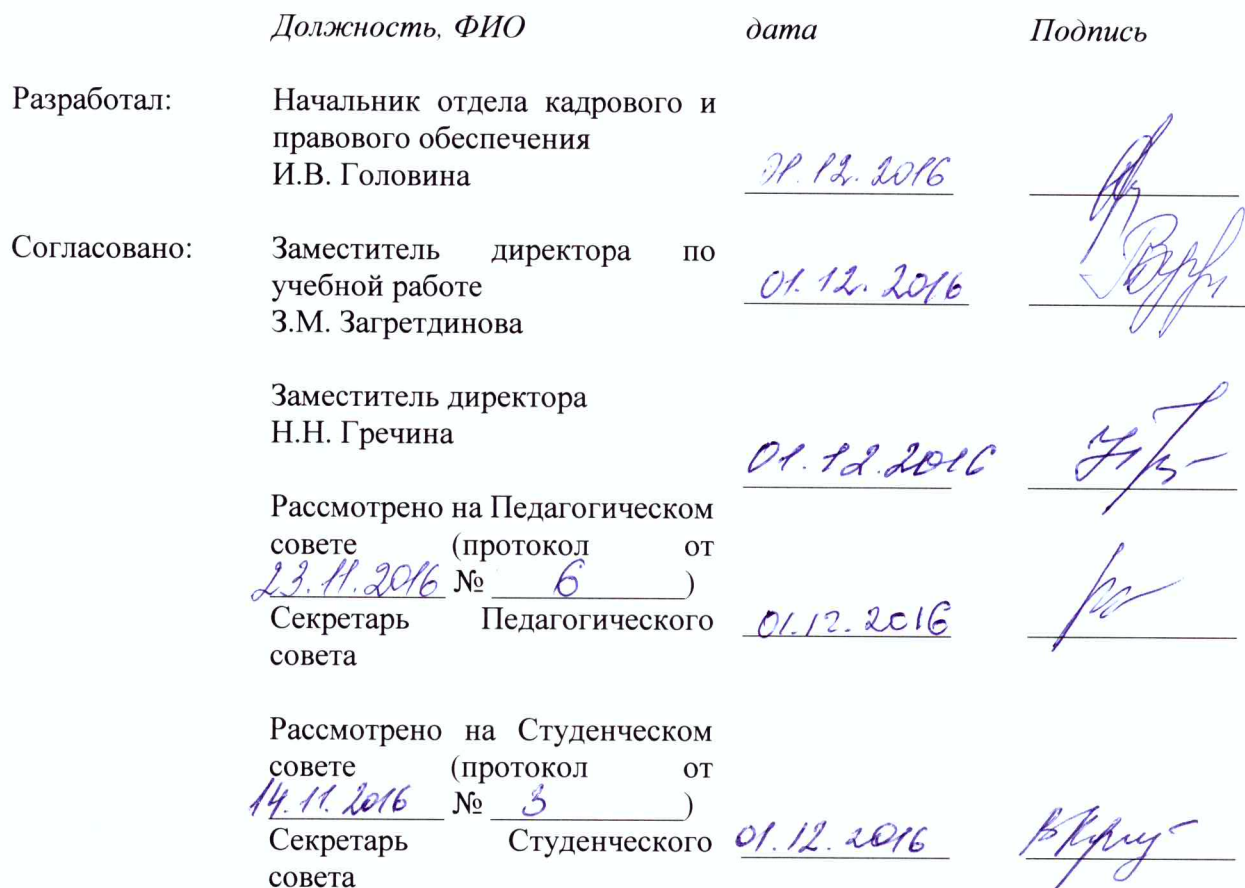 Должность, ФИО дата Подпись
Разработал: Начальник отдела кадрового и
правового обеспечения
И.В. Головина 01.12.2016
Согласовано: Заместитель директора по
учебной работе 01.12.2016
З.М. Загретдинова
Заместитель директора
Н.Н. Гречина 01.12.2016
Рассмотрено на Педагогическом
совете (протокол от
23.11.2016 № 6 )
Секретарь Педагогического 01.12.2016
совета
Рассмотрено на Студенческом
совете (протокол от
14.11.2016 № 3 )
Секретарь Студенческого 01.12.2016
совета